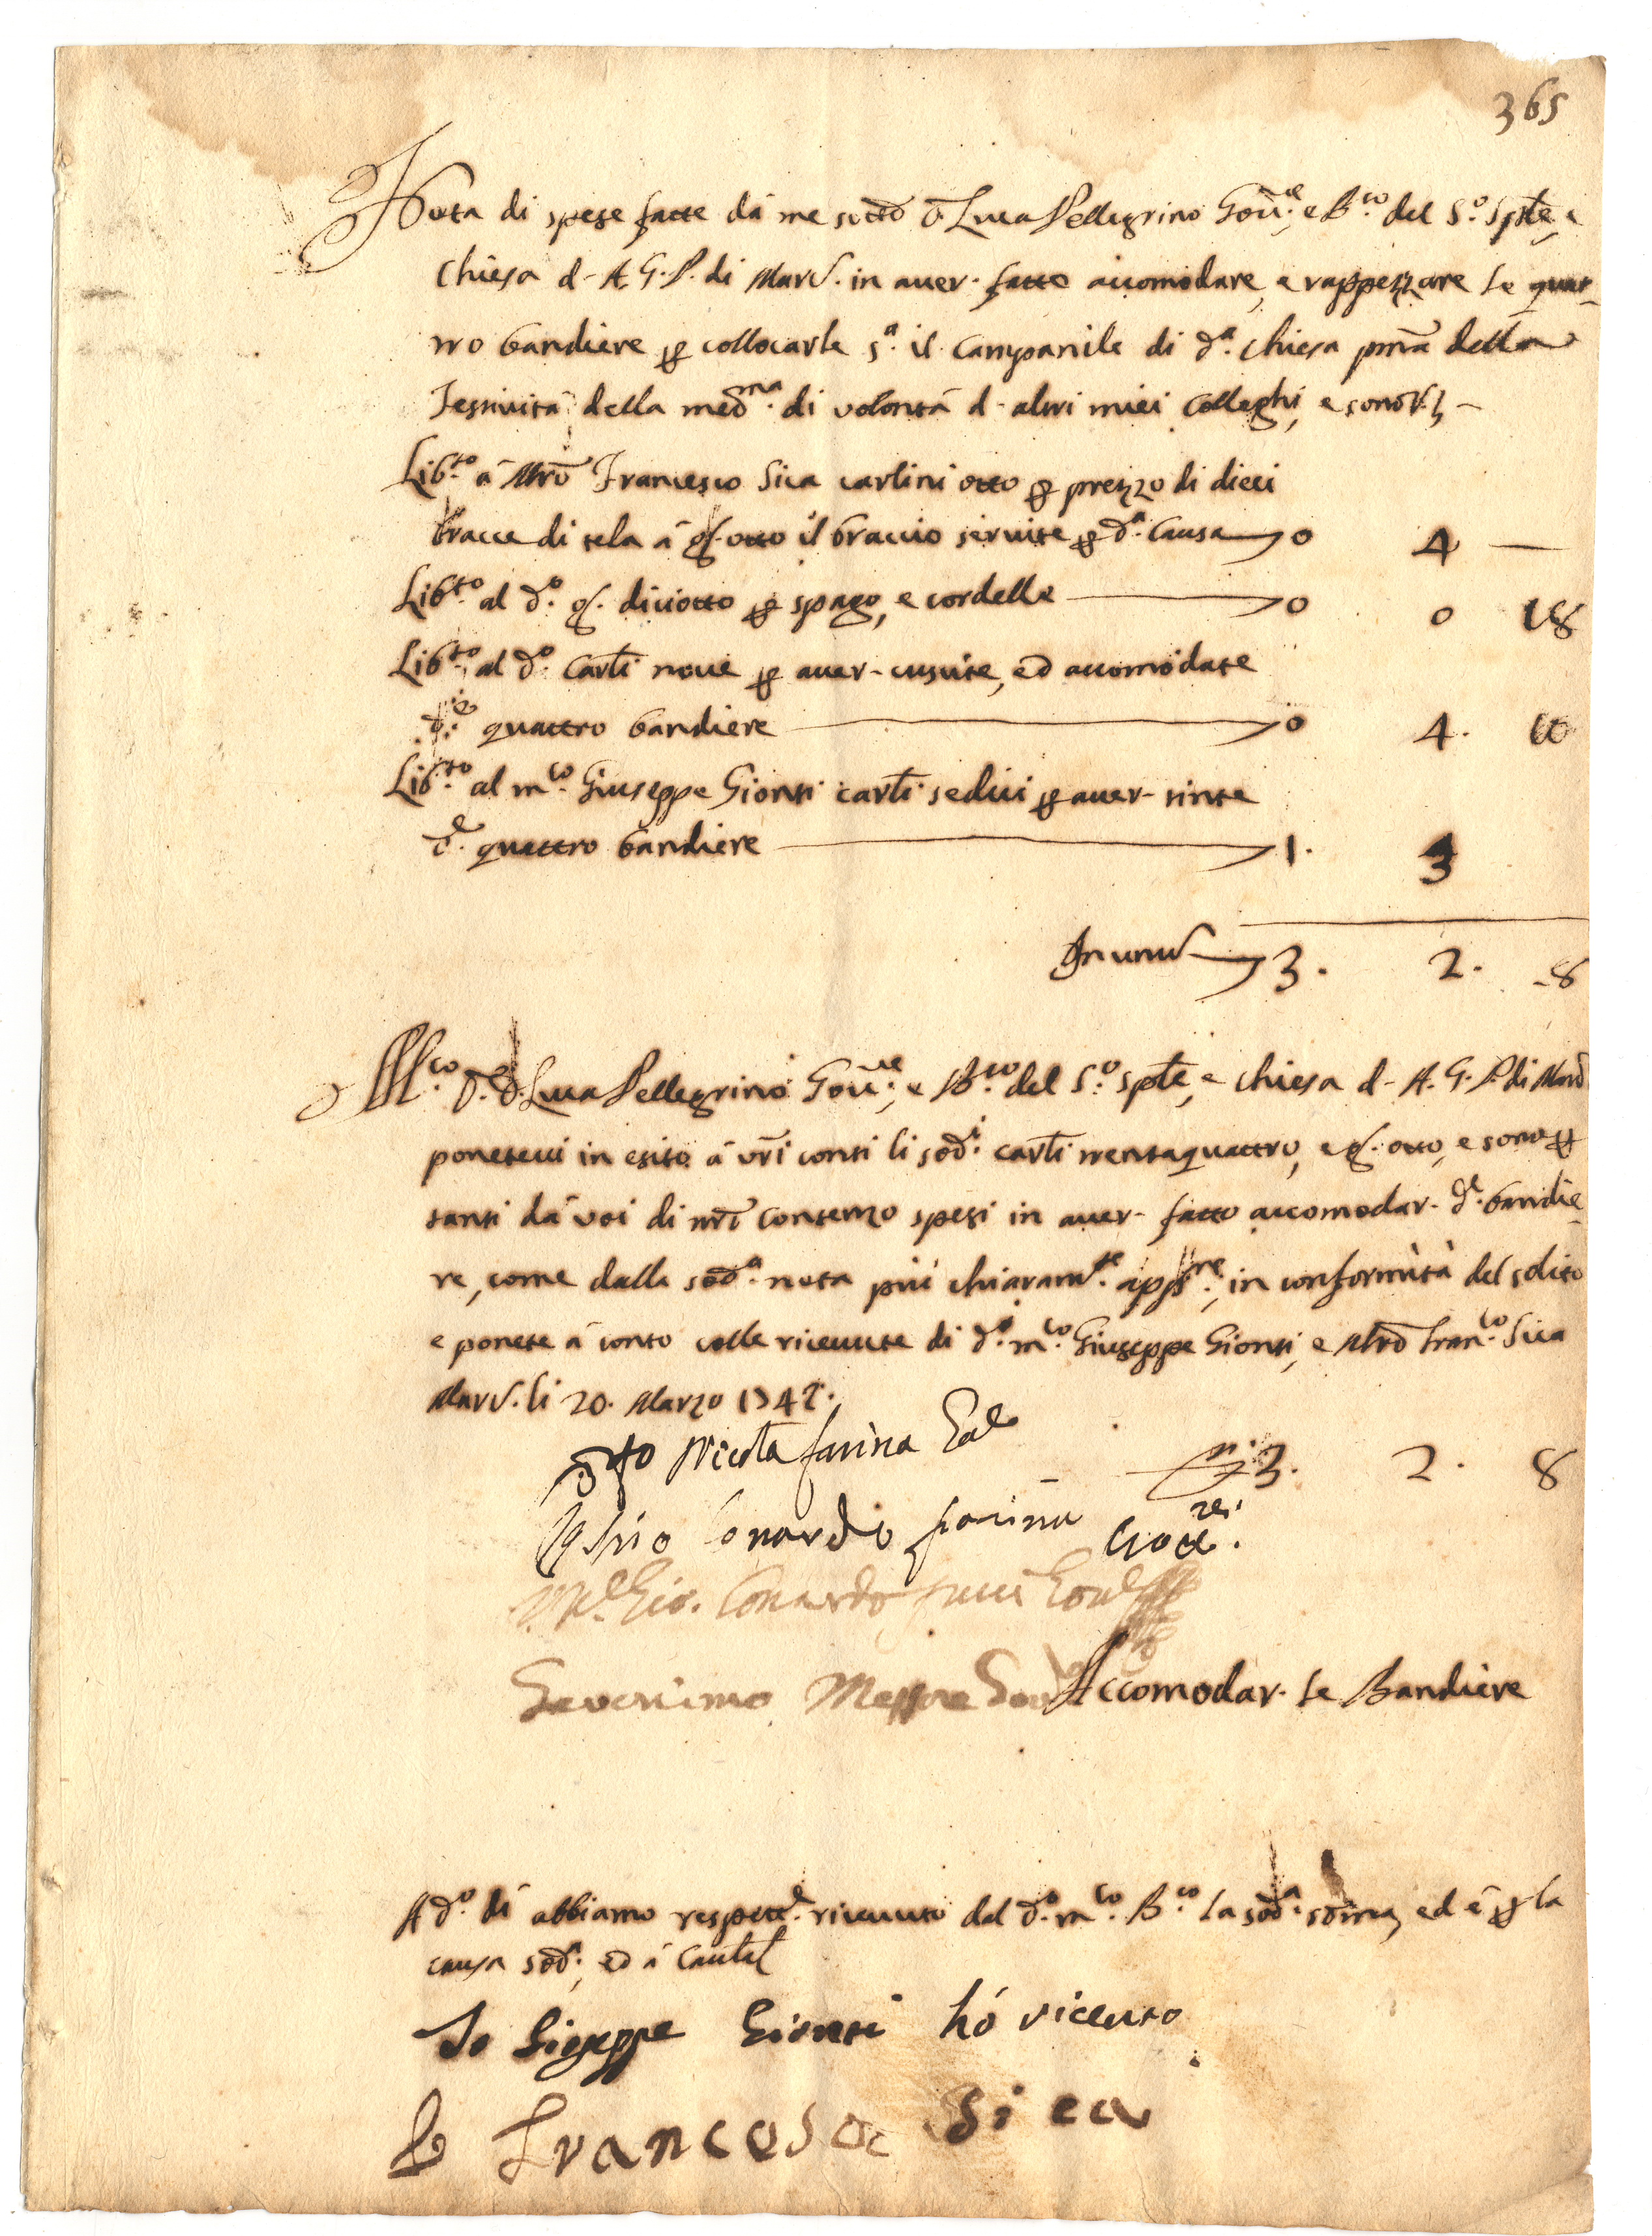 365
Nota di spese fatte dà me sotto D. Luca Pellegrino Gov.re e B.co del S.o Sple, e
Chiesa d- A. G. P. di Marc. in aver- fatto accomodare, e rappezzare le quat-
tro bandiere p collocarle s.a il Campanile di d.a Chiesa pma della
Festività della med.ma di volontà d- altri miei Colleghi, e sono V.z -
Lib.to à Mro Francesco Sica carlini otto p prezzo di dieci
bracce di tela à g. otto il braccio servite p d.a Causa 0 4 —
Lib.to al d.o g. diciotto p spago, e cordelle 0 0 18
Lib.to al d.o Carli nove p aver- cusite, ed accomodate
d.e quattro bandiere 0 4. 10
Lib.to al m.co Giuseppe Gionti carli sedici p aver- tinte
d.e quattro bandiere 1. 3
In unu 3. 2. -8
M.co D.r D. Luca Pellegrino Gov.re, e B.co del S.o Sple, e Chiesa d- A. G. P. di Marc
ponetevi in esito à vri conti li sod.i carli trentaquattro, e g. otto, e sono p
tanti dà voi di nro consenzo spesi in aver- fatto accomodar- d.e bandie
re, come dalla sod.a nota più chiaram.te appre, in conformità del solito
e ponete à conto colle ricevute di d.o m.co Giuseppe Gionti, e Mro Fran.co Sica
Marc. li 20. Marzo 1742.
Nicola farina
3. 2. 8
lonardo farina
Gio. Lonardo
Severino Messore Gov
Accomodar- le Bandiere
A d.o dì abbiamo respette. ricevuto dal d.o m.co B.co la sod.a soma, ed è p la
causa sod.a, ed à Cautel
Io Gioseppe Gionti hó riceuto
Io Francesco Sica